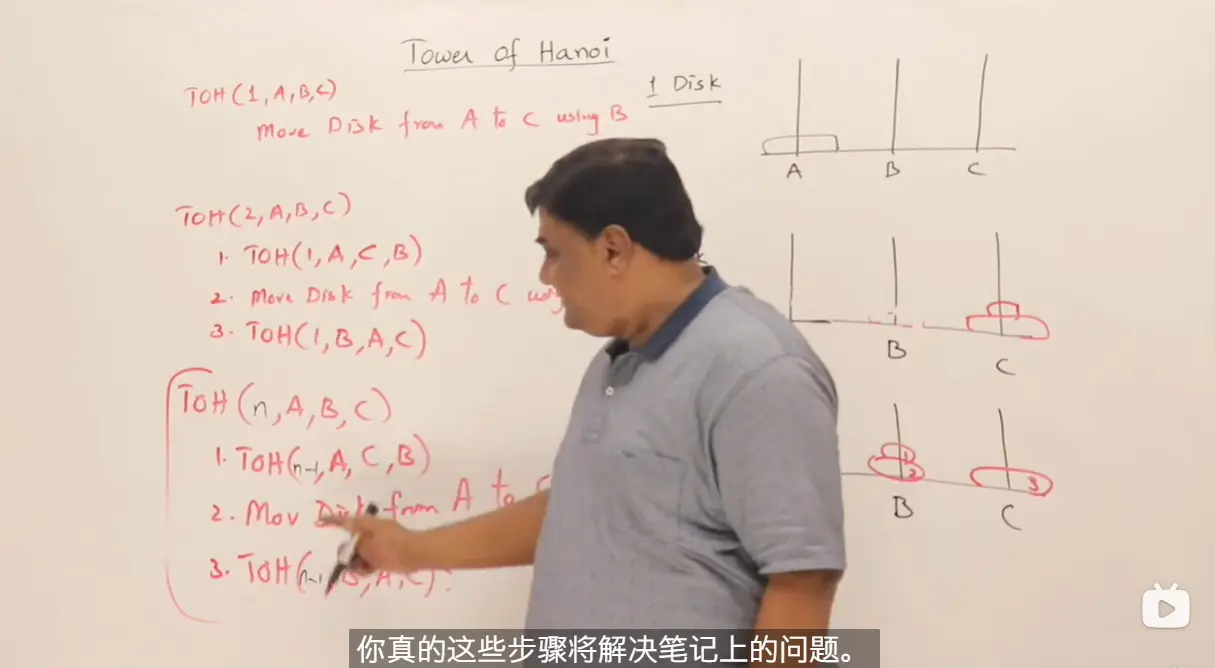 Tower of Hanoi
TOH(1,A,B,C)
Move Disk from A to C using B
1 Disk
A B C
TOH(2,A,B,C)
1. TOH(1,A,C,B)
2. Move Disk from A to C
3. TOH(1,B,A,C)
B
C
TOH(n,A,B,C)
1. TOH(n-1,A,C,B)
2. Mov Disk from A to
3. TOH(n-1,B,A,C)
1
2
3
B
C
你真的这些步骤将解决笔记上的问题。